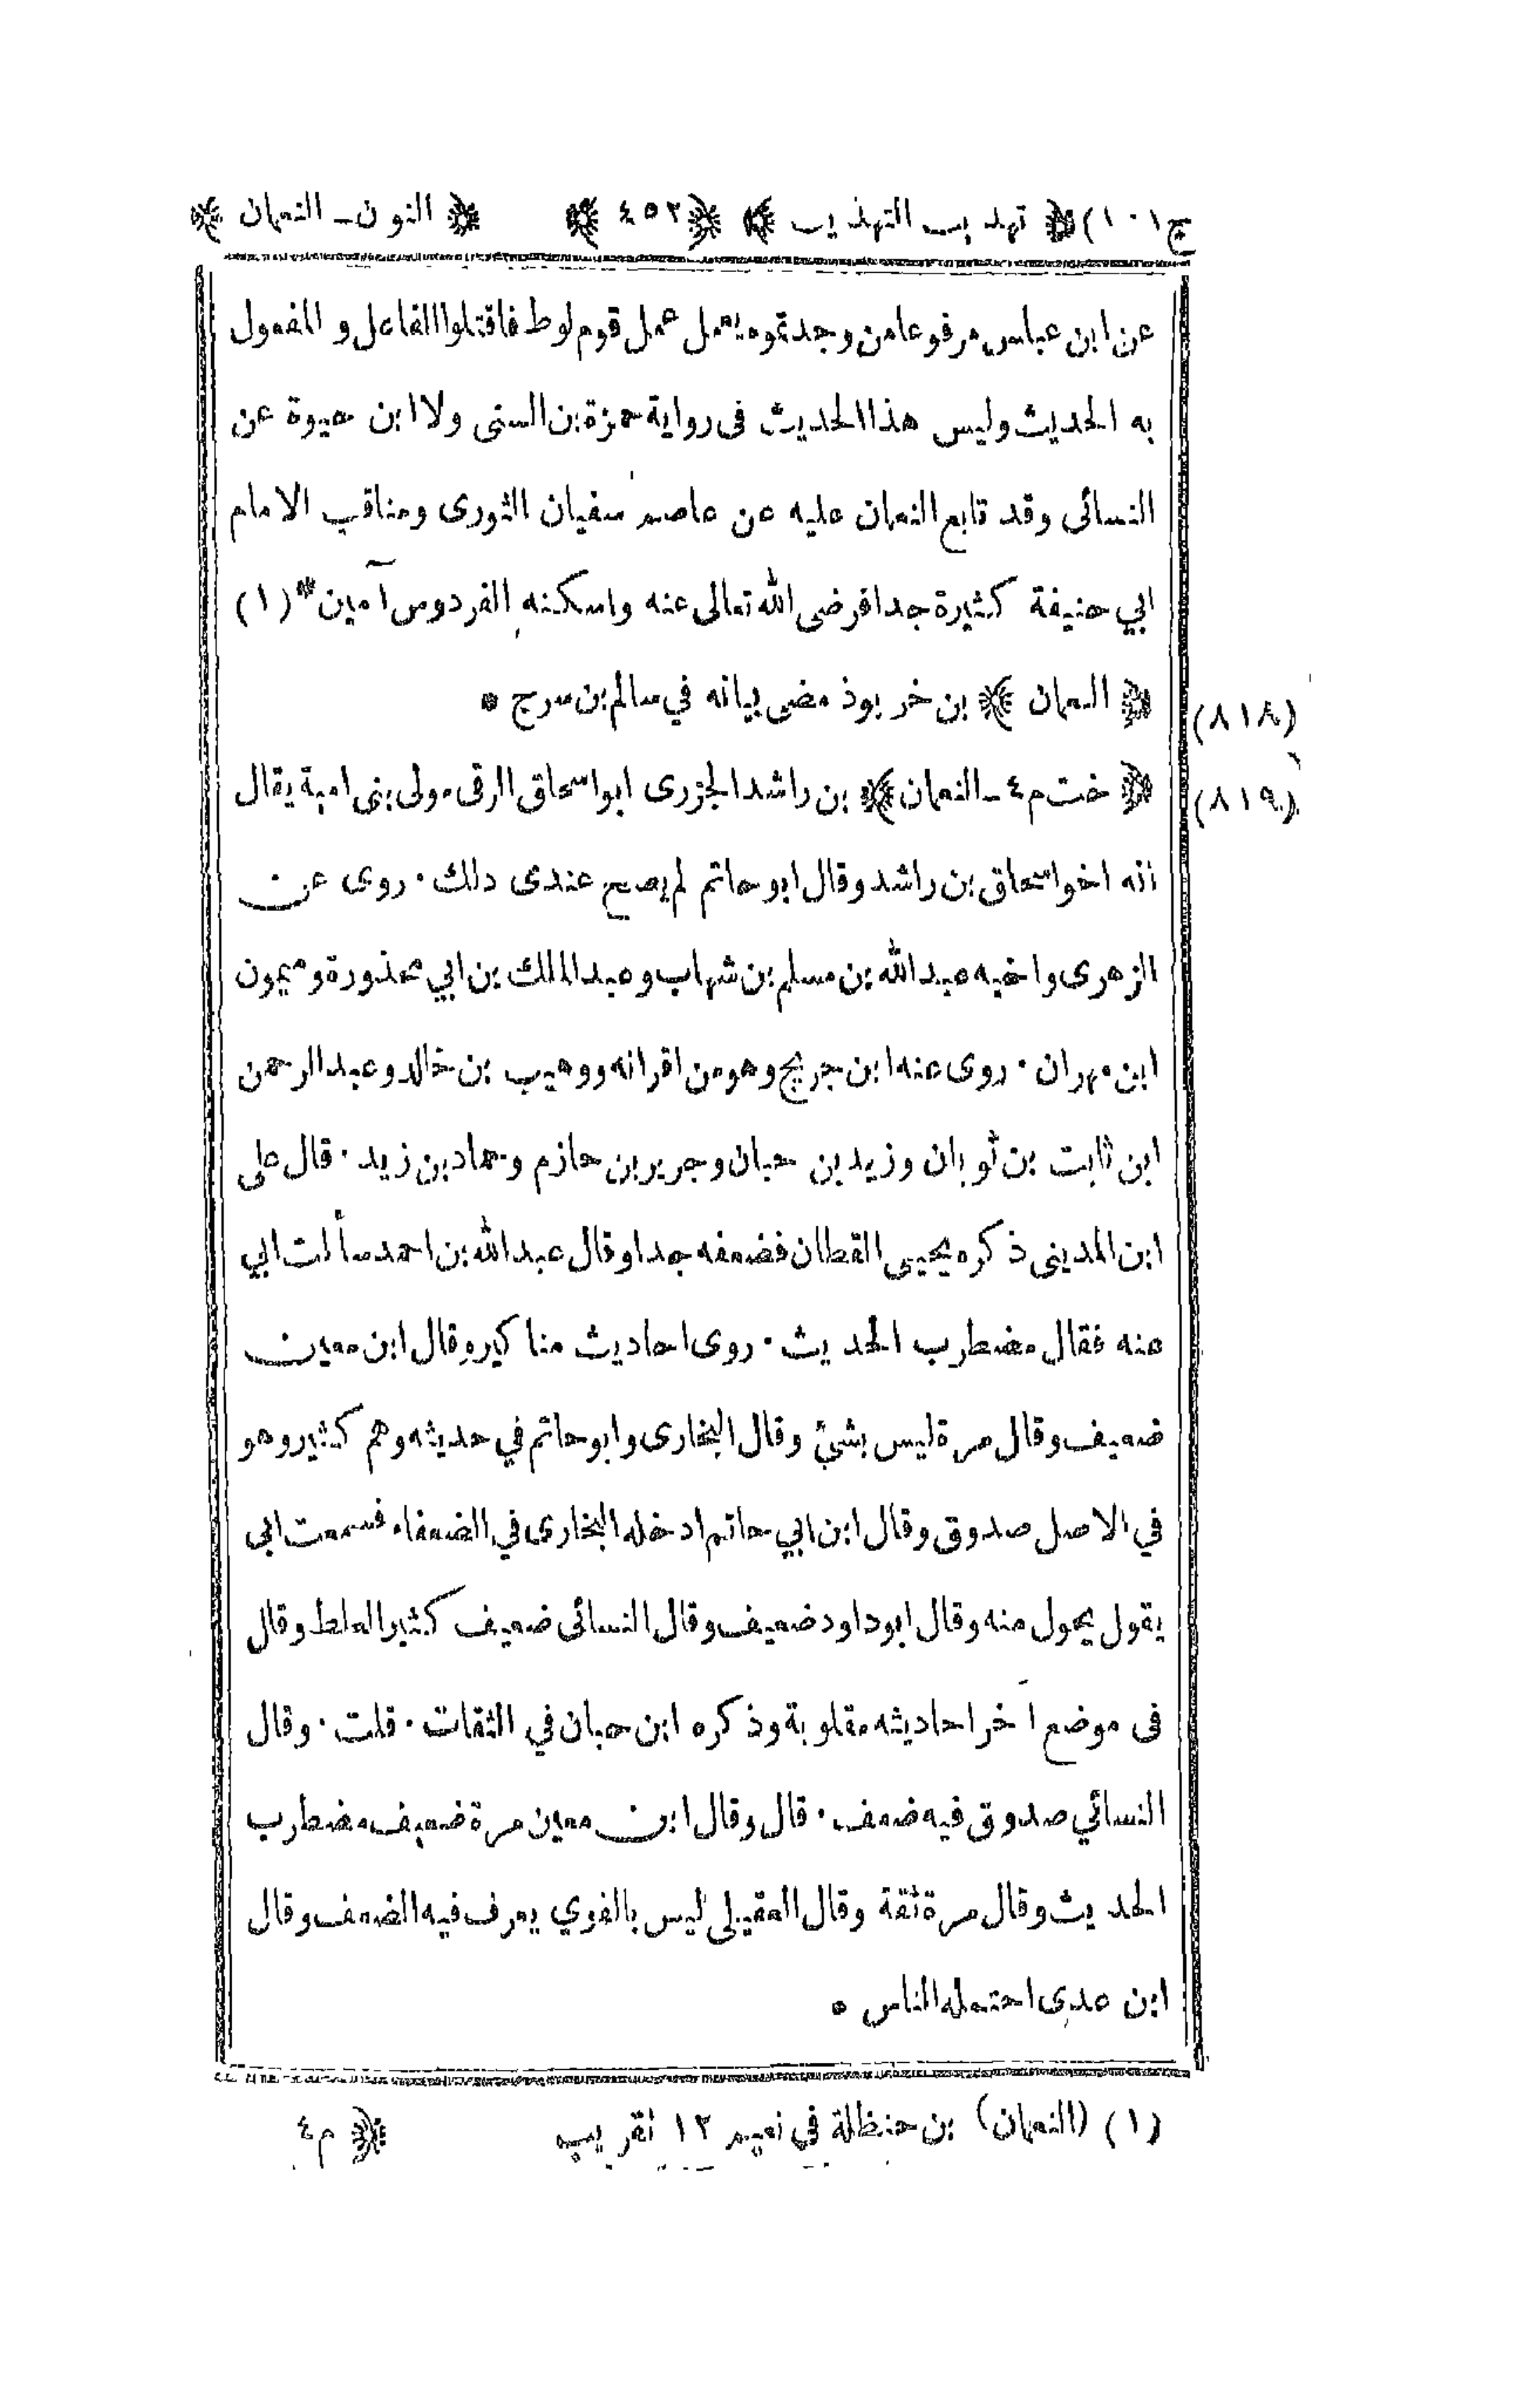 ج(١٠) ﴿ تهذيب التهذيب ﴾ ﴿ ٤٥٢ ﴾ ﴿ النون ـ النعمان ﴾
عن ابن عباس مرفوعا من وجدتموه يعمل عمل قوم لوط فاقتلوا الفاعل و المفعول
به الحديث وليس هذا الحديث فى رواية حمزة بن السنى ولا ابن حيوة عن
النسائى وقد تابع النعمان عليه عن عاصم سفيان الثورى ومناقب الامام
ابي حنيفة كثيرة جدا فرضى الله تعالى عنه واسكنه الفردوس آمين * (١)
﴿ النعمان ﴾ بن خربوذ مضى بيانه في سالم بن سرج •
(٨١٨)
﴿ خت م ٤ ـ النعمان ﴾ بن راشد الجزرى ابو اسحاق الرقى مولى بنى امية يقال
(٨١٩)
انه اخو اسحاق بن راشد وقال ابو حاتم لم يصح عندى ذلك ٠ روى عن
الزهرى واخيه عبد الله بن مسلم بن شهاب وعبد الملك بن ابي محذورة وميمون
ابن مهران ٠ روى عنه ابن جريج وهو من اقرانه ووهيب بن خالد وعبد الرحمن
ابن ثابت بن ثوبان وزيد بن حبان وجرير بن حازم وحماد بن زيد ٠ قال على
ابن المدينى ذكره يحيى القطان فضعفه جدا وقال عبد الله بن احمد سألت ابي
عنه فقال مضطرب الحديث ٠ روى احاديث مناكير وقال ابن معين
ضعيف وقال مرة ليس بشئ وقال البخارى وابو حاتم في حديثه وهم كثير وهو
في الاصل صدوق وقال ابن ابي حاتم ادخله البخارى في الضعفاء فسمعت ابى
يقول يحول منه وقال ابو داود ضعيف وقال النسائى ضعيف كثير الغلط وقال
فى موضع آخر احاديثه مقلوبة وذكره ابن حبان في الثقات ٠ قلت ٠ وقال
النسائي صدوق فيه ضعف ٠ قال وقال ابن معين مرة ضعيف مضطرب
الحديث وقال مرة ثقة وقال العقيلى ليس بالقوي يعرف فيه الضعف وقال
ابن عدى احتمله الناس •
(١) (النعمان) بن حنظلة في نعيم ١٢ تقريب
﴿ م ٤